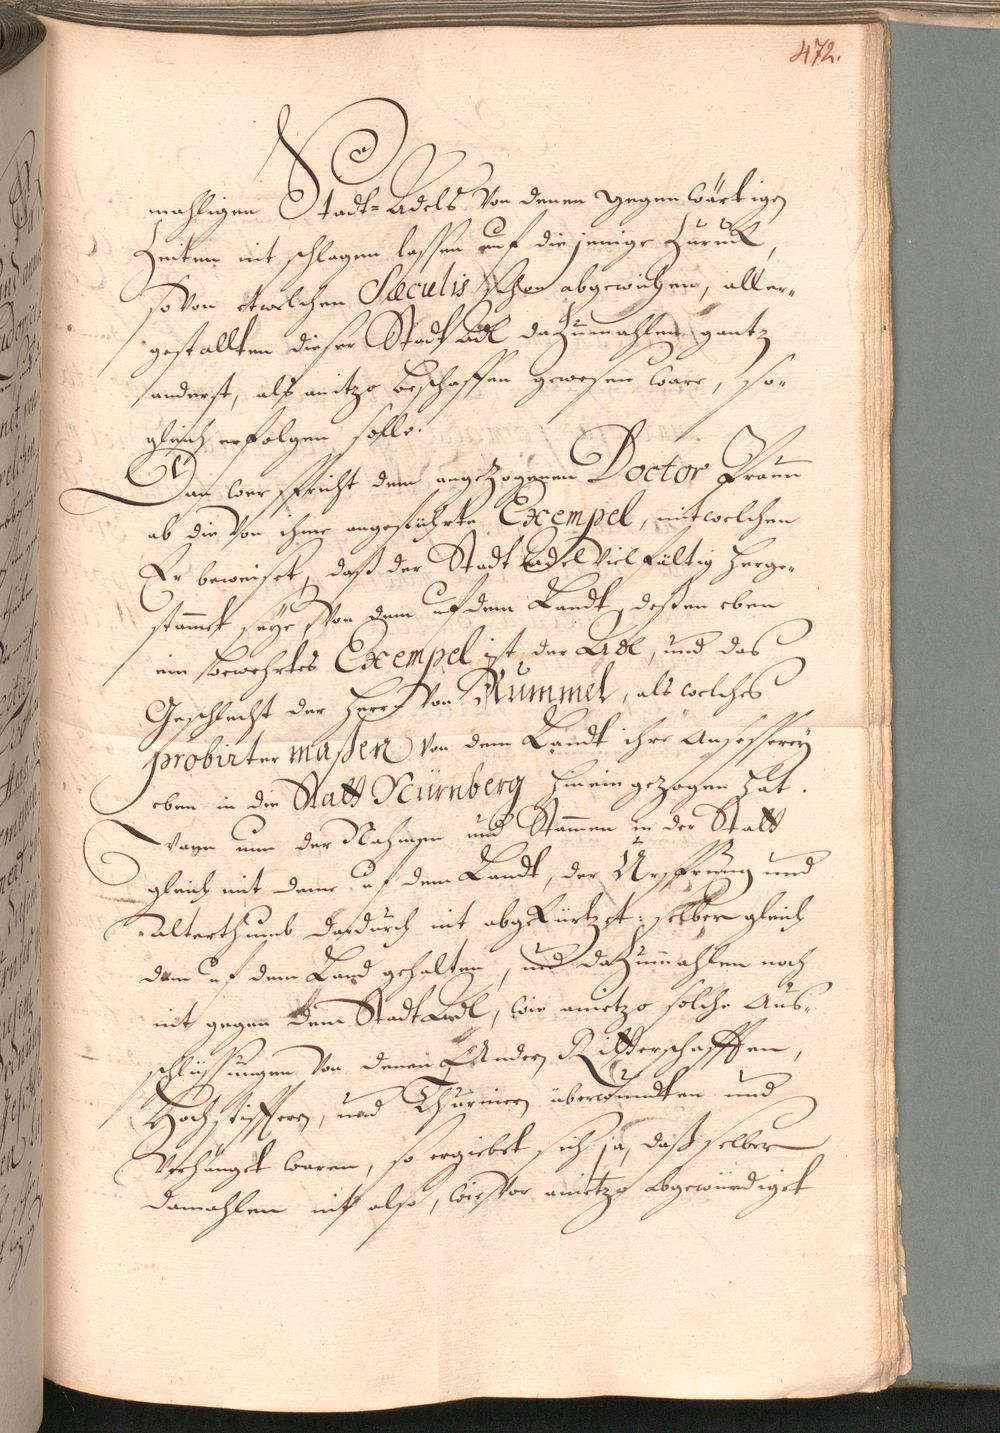 472.
mahligen Stadt-Adels von denen gegenwärtigen
Zeiten nit schlagen lassen auf diejenige zuruck,
so von etwelchen Sæculis schon abgewichen, aller-
gestallten dieser Stadt Adl dazumahlen gantz
anderst, als anietzo beschaffen gewesen ware, so-
gleich erfolgen solle.
Dan wer spricht dem angezogenen Doctor
ab die von ihme angeführte Exempel, mit welchen
Er beweiset, daß der Stadt Adel vielfältig herge-
stamet seye von dem uf dem Landt, deßen eben
ein bewehrtes Exempel ist der Adl, und das
Geschlecht der Herrn von Rummel, als welches
probirter maßen von dem Landt ihre Ansesserey
eben in die Statt Nürnberg hinein gezogen hat.
Wann nun der Nahmen und Stammen in der Statt
gleich mit deme uf dem Landt, der Ursprung und
Alterthumb dardurch nit abgekürtzet: selber gleich
dem uf dem Land gehalten, und dazumahlen noch
nit gegen dem Stadt Adl, wie anietzo solche Aus-
schlüssungen von denen Andern Ritterschafften,
Hochstifftern, und Thurnieren und
verhänget waren, so ergiebet sich ja, daß selber
damahlen nit also, wie vor anietzo abgewürdiget